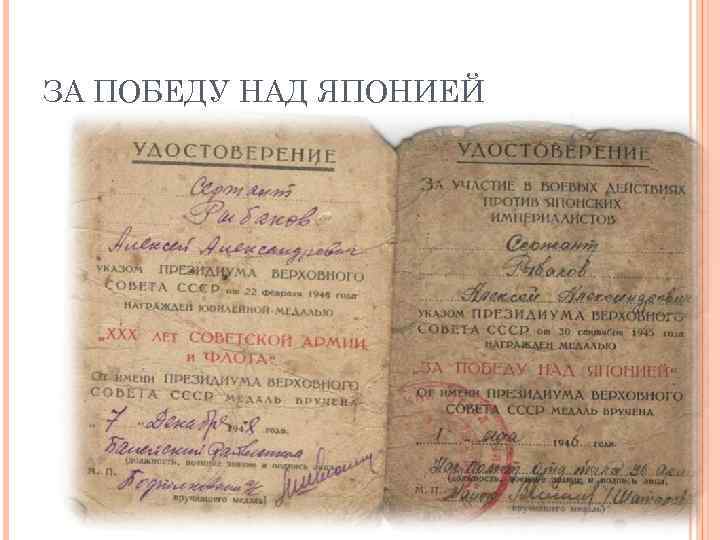 ЗА ПОБЕДУ НАД ЯПОНИЕЙ
УДОСТОВЕРЕНИЕ
Сержант
Рыбаков
Алексей Александрович
УКАЗОМ ПРЕЗИДИУМА ВЕРХОВНОГО
СОВЕТА СССР от 22 февраля 1948 года
НАГРАЖДЕН ЮБИЛЕЙНОЙ МЕДАЛЬЮ
„XXX ЛЕТ СОВЕТСКОЙ АРМИИ
И ФЛОТА“
ОТ ИМЕНИ ПРЕЗИДИУМА ВЕРХОВНОГО
СОВЕТА СССР МЕДАЛЬ ВРУЧЕНА
„7“ Декабря 1948 года.
Балейский
(должность, воинское звание и подпись лица,
М. П.
вручившего медаль)
УДОСТОВЕРЕНИЕ
ЗА УЧАСТИЕ В БОЕВЫХ ДЕЙСТВИЯХ
ПРОТИВ ЯПОНСКИХ
ИМПЕРИАЛИСТОВ
Сержант
Рыбаков
Алексей Александрович
УКАЗОМ ПРЕЗИДИУМА ВЕРХОВНОГО
СОВЕТА СССР от 30 сентября 1945 года
НАГРАЖДЕН МЕДАЛЬЮ
„ЗА ПОБЕДУ НАД ЯПОНИЕЙ“
ОТ ИМЕНИ ПРЕЗИДИУМА ВЕРХОВНОГО
СОВЕТА СССР МЕДАЛЬ ВРУЧЕНА
„1“ 1946 года.
(должность, воинское звание и подпись лица,
М. П.
вручившего медаль)